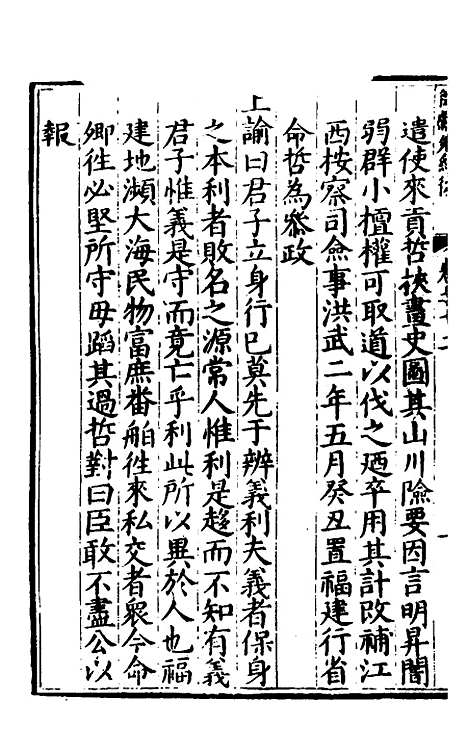 遣使來貢哲挾畫史圖其山川險要因言明昇闇
弱群小擅權可取道以伐之廼卒用其計改補江
西按察司僉事洪武二年五月癸丑置福建行省
命哲為參政
上諭曰君子立身行已莫先于辨義利夫義者保身
之本利者敗名之源常人惟利是趨而不知有義
君子惟義是守而竟亡乎利此所以異於人也福
建地瀕大海民物富庶番舶徃來私交者眾今命
卿徃必堅所守毋蹈其過哲對曰臣敢不盡公以
報